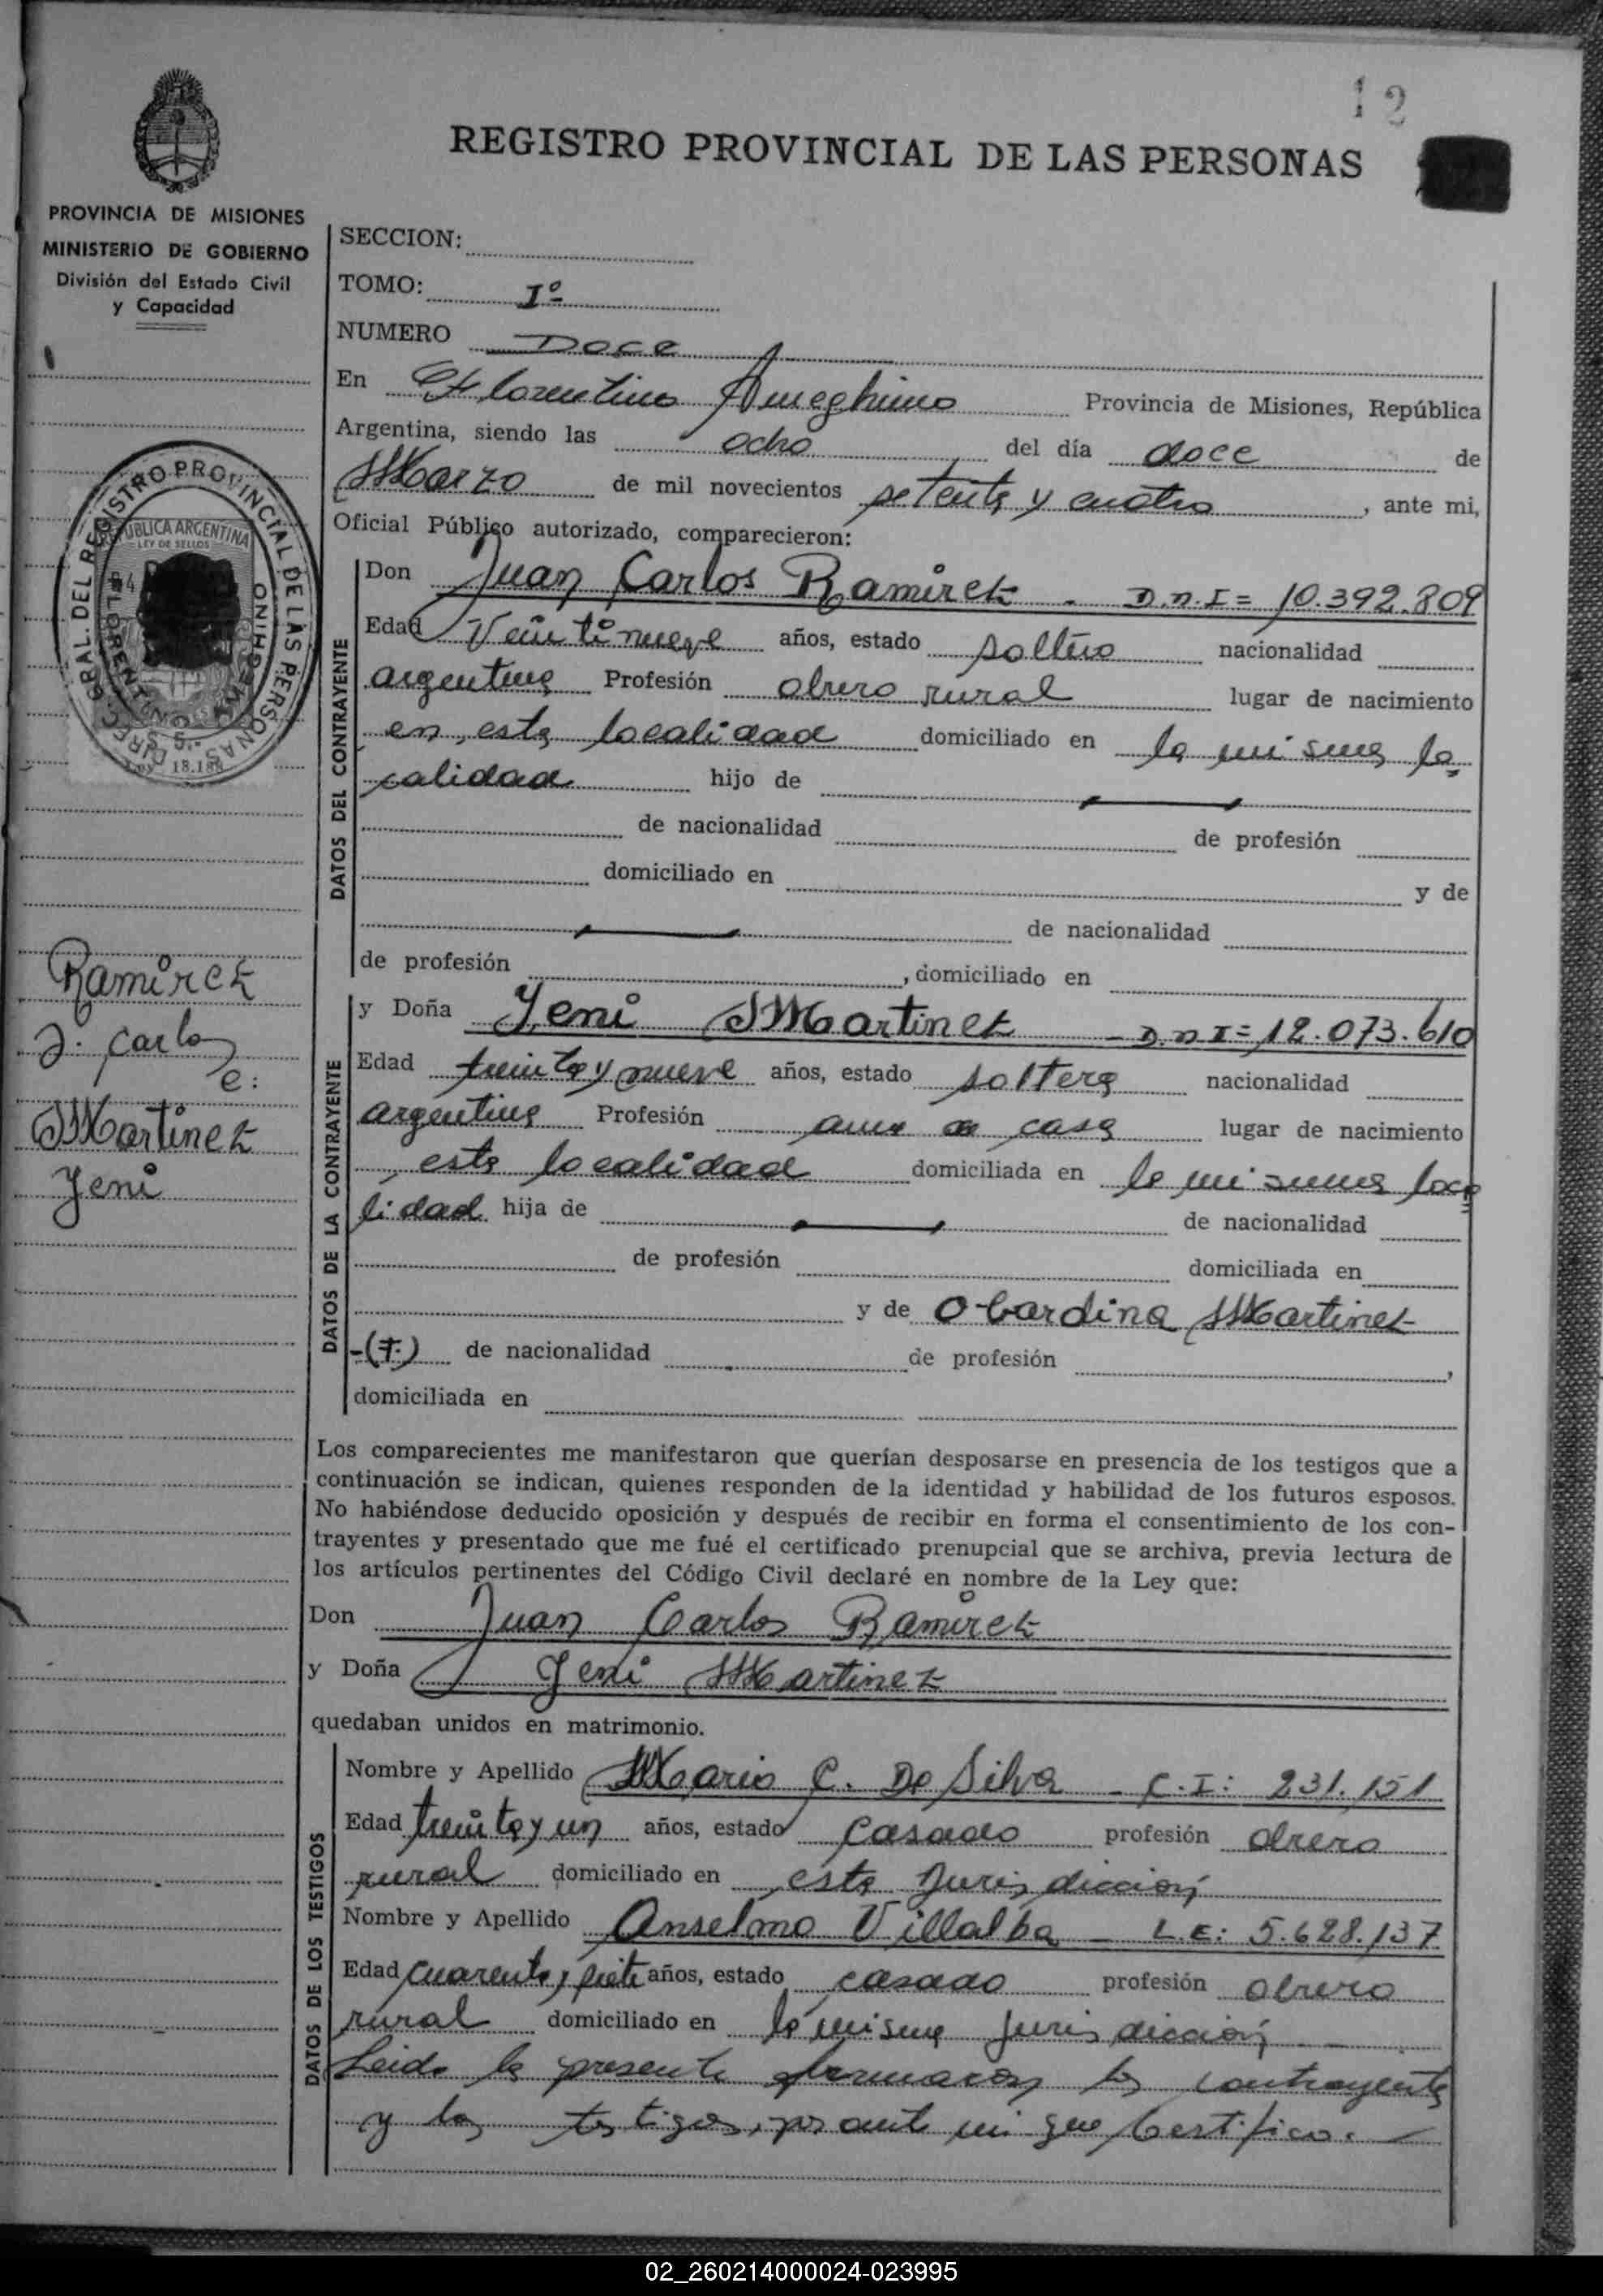 12
REGISTRO PROVINCIAL DE LAS PERSONAS
PROVINCIA DE MISIONES
MINISTERIO DE GOBIERNO
División del Estado Civil
y Capacidad
SECCION:
TOMO: Iº
NUMERO Doce
En Florentino Ameghino Provincia de Misiones, República
Argentina, siendo las ocho del día doce de
Marzo de mil novecientos setenta y cuatro, ante mi,
Oficial Público autorizado, comparecieron:
DIREC. GRAL. DEL REGISTRO PROVINCIAL DE LAS PERSONAS
FLORENTINO AMEGHINO
REPUBLICA ARGENTINA
LEY DE SELLOS
Ley 18.188
DATOS DEL CONTRAYENTE
Don Juan Carlos Ramirez - D.n.I= 10.392.809
Edad Veintinueve años, estado soltero nacionalidad
argentina Profesión obrero rural lugar de nacimiento
en esta localidad domiciliado en la misma lo
calidad hijo de
de nacionalidad de profesión
domiciliado en y de
de nacionalidad
de profesión , domiciliado en
Ramirez
J. Carlos
e:
Martinez
Jeni
DATOS DE LA CONTRAYENTE
y Doña Jeni Martinez - D.n I= 12.073.610
Edad treinta y nueve años, estado soltera nacionalidad
argentina Profesión ama de casa lugar de nacimiento
esta localidad domiciliada en la misma loca
lidad hija de de nacionalidad
de profesión domiciliada en
y de Obardina Martinez
-(F.) de nacionalidad de profesión ,
domiciliada en
Los comparecientes me manifestaron que querían desposarse en presencia de los testigos que a
continuación se indican, quienes responden de la identidad y habilidad de los futuros esposos.
No habiéndose deducido oposición y después de recibir en forma el consentimiento de los con-
trayentes y presentado que me fué el certificado prenupcial que se archiva, previa lectura de
los artículos pertinentes del Código Civil declaré en nombre de la Ley que:
Don Juan Carlos Ramirez
y Doña Jeni Martinez
quedaban unidos en matrimonio.
DATOS DE LOS TESTIGOS
Nombre y Apellido Mario C. Da Silva - C.I: 231.151
Edad treinta y un años, estado casado profesión obrero
rural domiciliado en esta Jurisdicción
Nombre y Apellido Anselmo Villalba - L.E: 5.628.137
Edad cuarenta y siete años, estado casado profesión obrero
rural domiciliado en la misma jurisdicción
Leida la presente firmaron los contrayentes
y los testigos, por ante mi que Certifico.
02_260214000024-023995